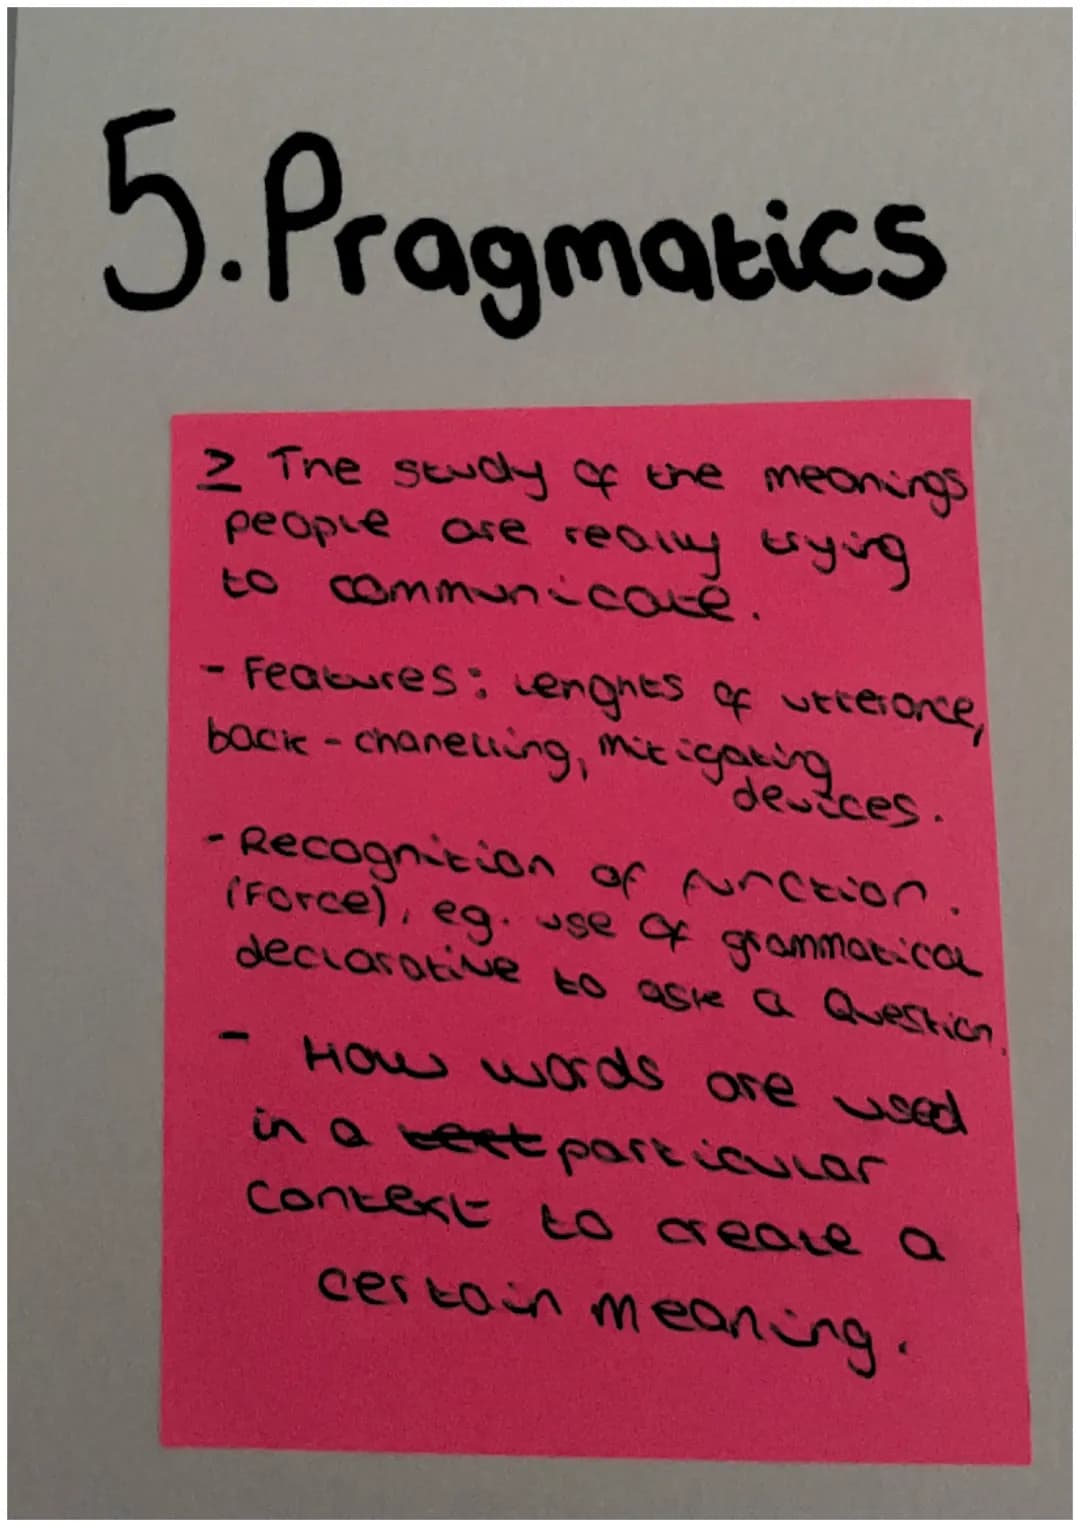 5. Pragmatics
> The study of the meanings
people are really trying
to communicate.
- Features: lenghts of utterance,
back-chanelling, mitigating
devices.
- Recognition of function.
(Force), eg. use of grammatical
declarative to ask a Question.
- How words are used
in a text particular
context to create a
certain meaning.